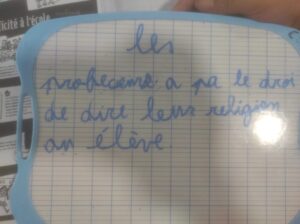 icité à l'école
les
professeure a pa le droi
de dire leur religion
an élève.